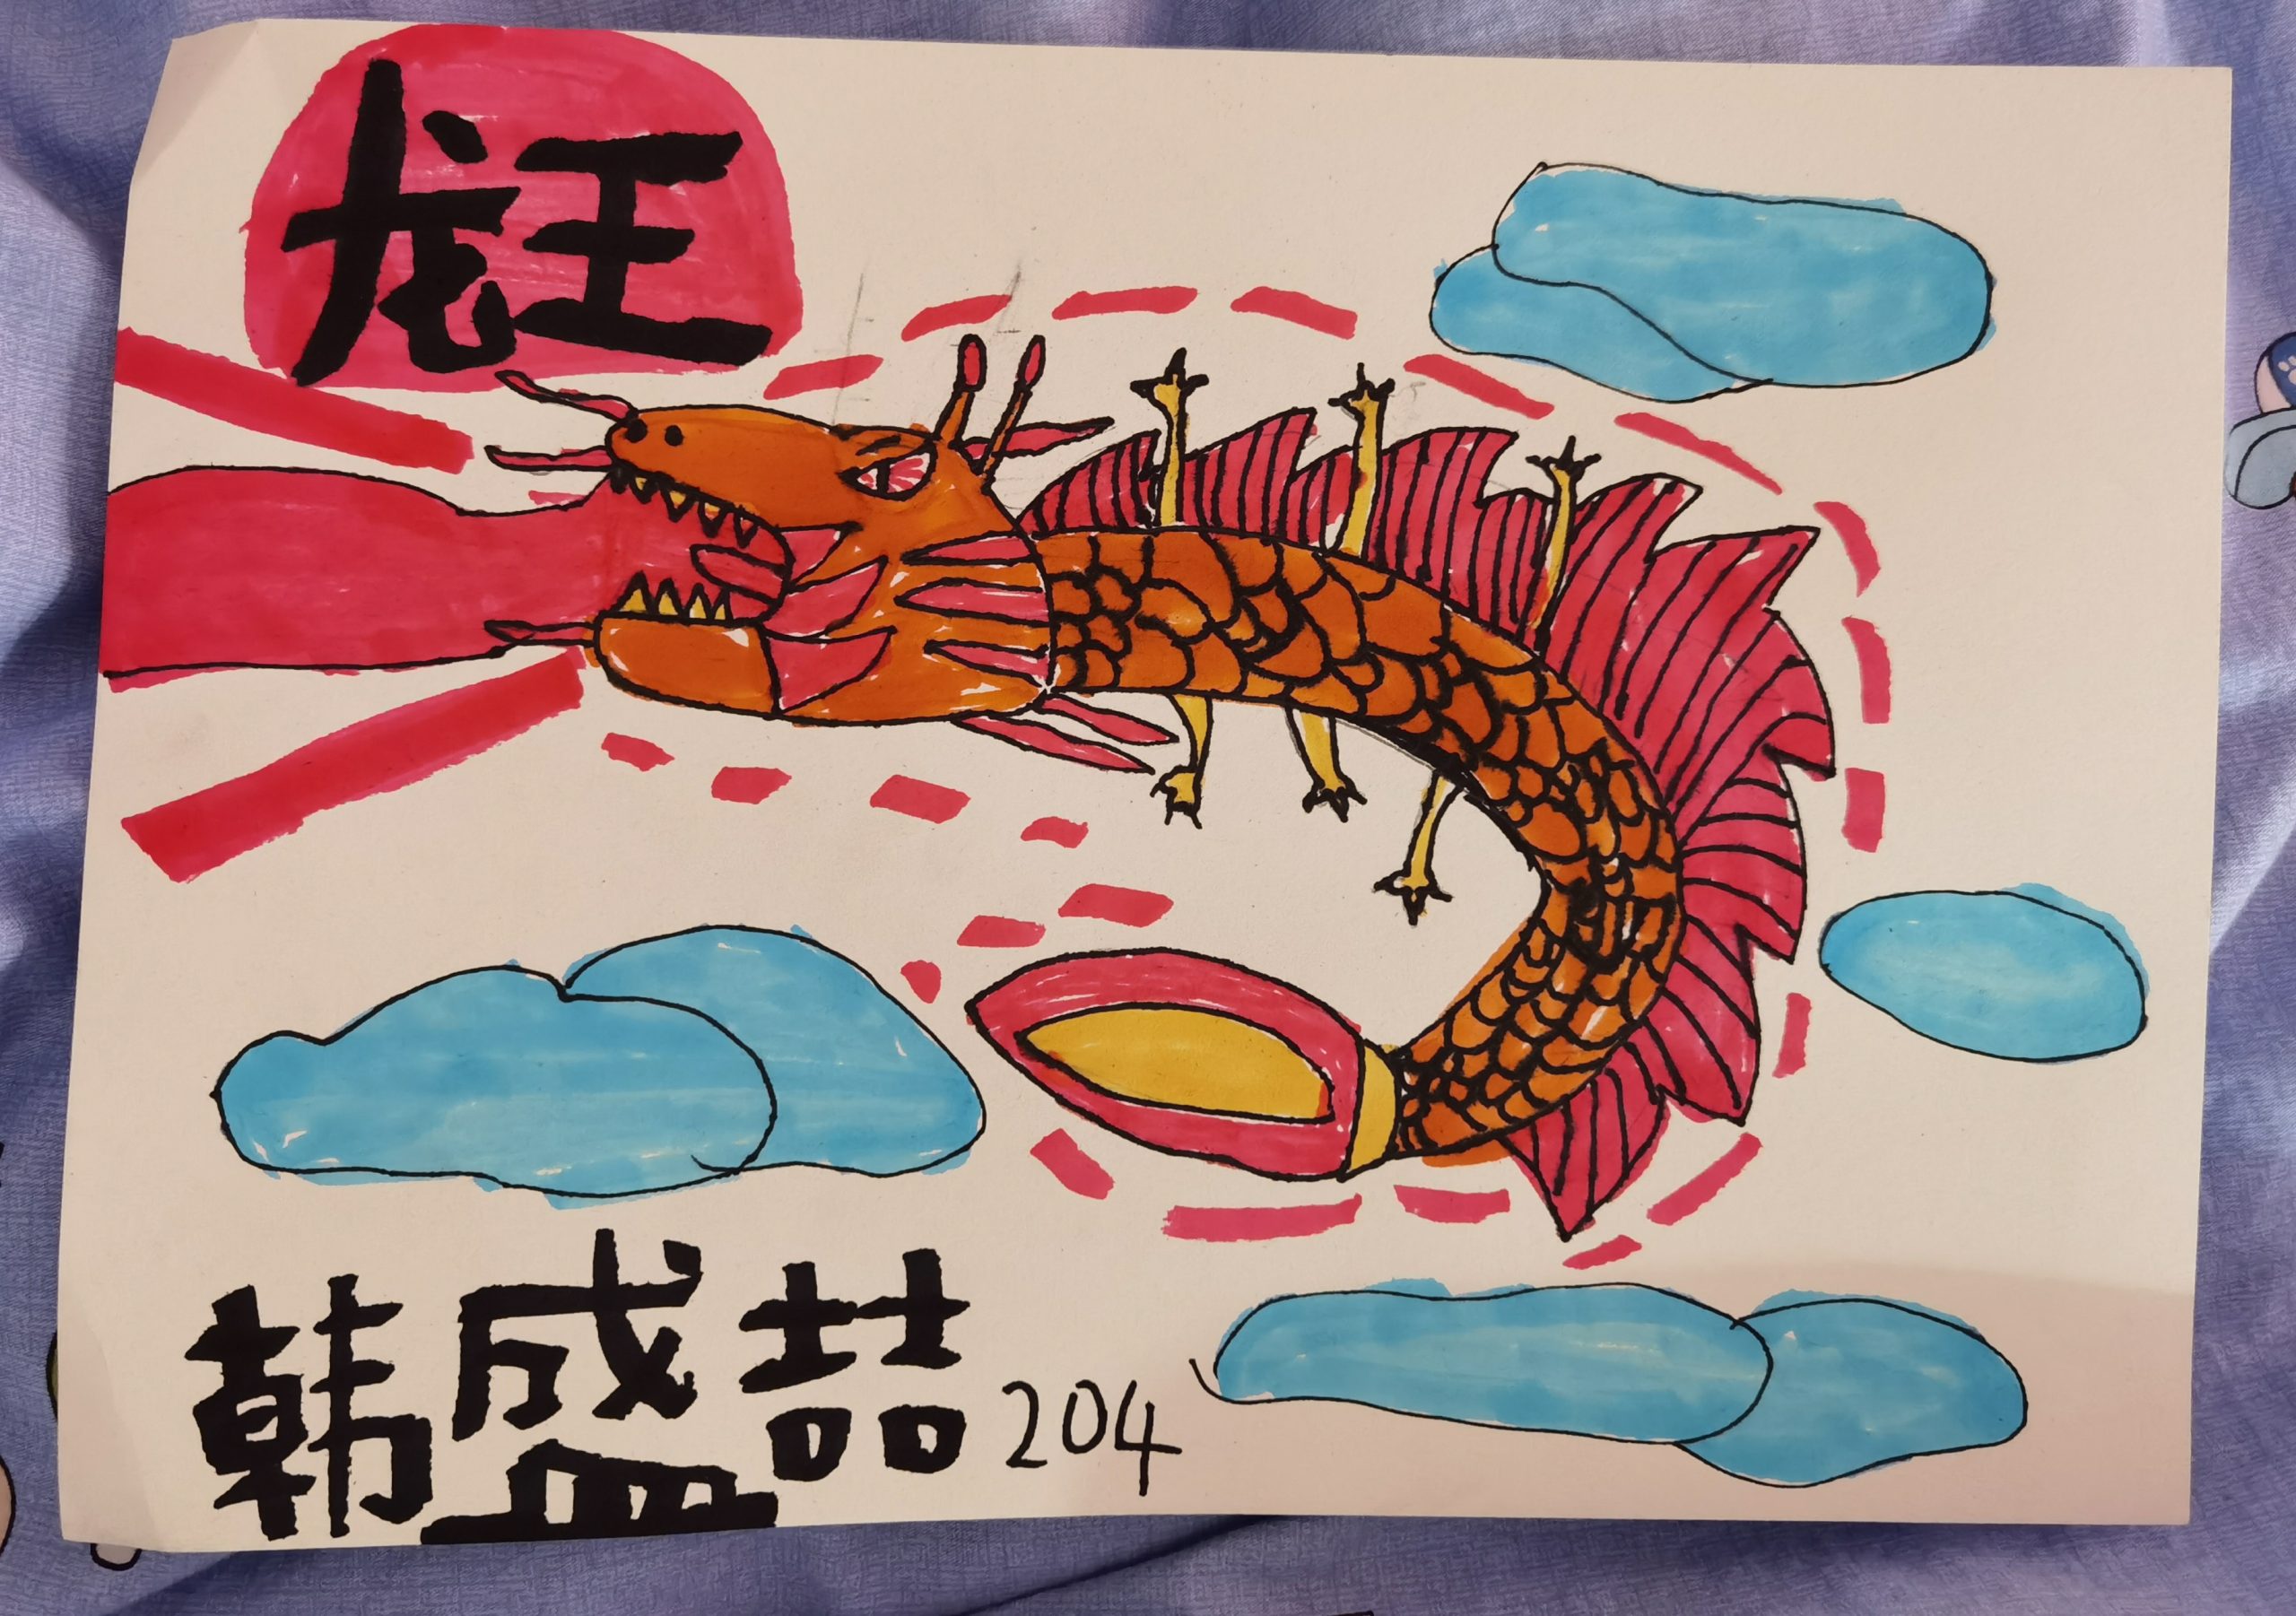 龙王
韩盛喆 204